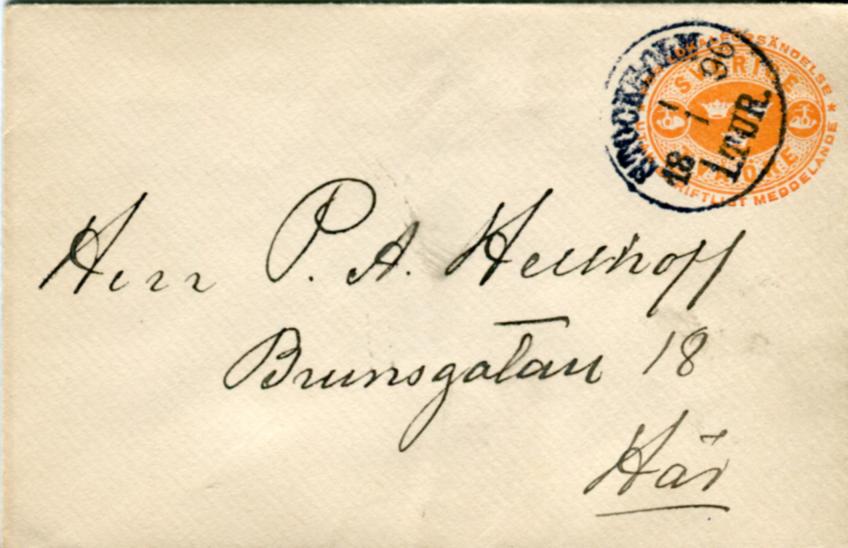 STOCKHOLM
18 1 96
1.TUR.
LOKALFÖRSÄNDELSE
SVERIGE
ÖRE
SKRIFTLIGT MEDDELANDE
Herr P. A. Neuhoff
Brunsgatan 18
Här